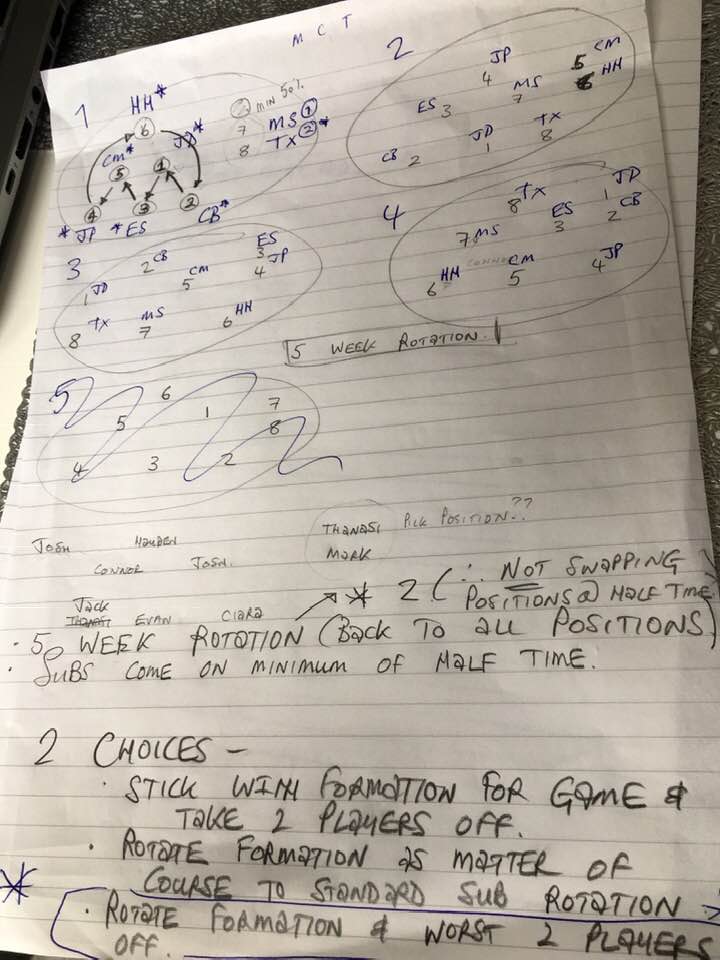 M C T
1
HH*
6
MIN 50%
7 MS 1
8 TX 2 *
CM*
5
1
4
3
2
* JP
* ES
CB*
2
JP
4
5 CM
6 HH
MS
7
ES 3
JD
1
TX
8
CB 2
3
2 CB
ES
3
4 JP
CM
5
1 JD
8 TX
MS
7
6 HH
4
TX
8
JD
1
ES
3
2 CB
7 MS
HH
6
CONNO CM
5
4 JP
5 WEEK ROTATION.
5
6
5
1
7
8
4
3
2
JOSH
HAYDEN
THANASI
PICK POSITION..??
CONNOR
JOSH.
MARK
* 2 (∴ NOT SWAPPING
POSITIONS @ HALF TIME
Jack
THANASI EVAN CIARA
· 5 WEEK ROTATION (BACK TO ALL POSITIONS)
· SUBS COME ON MINIMUM OF HALF TIME.
2 CHOICES -
· STICK WITH FORMATION FOR GAME &
TAKE 2 PLAYERS OFF.
· ROTATE FORMATION AS MATTER OF
COURSE TO STANDARD SUB ROTATION
* · ROTATE FORMATION & WORST 2 PLAYERS
OFF.